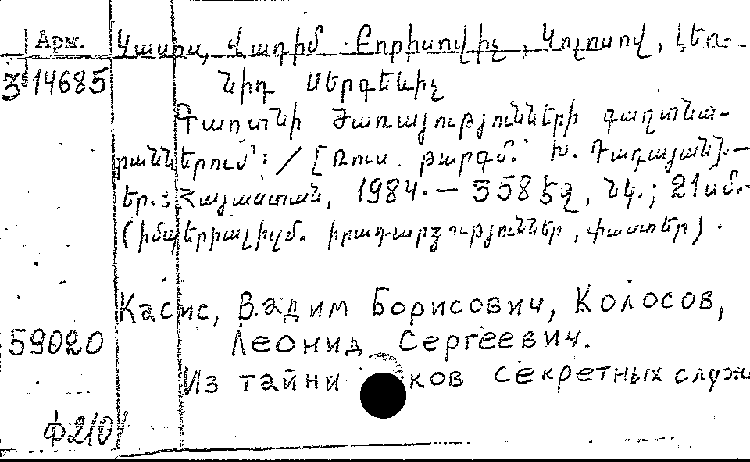 Арм. Կասիս, Վադիմ Բորիսովիչ, Կոլոսով, Լեո-
3 14685 նիդ Սերգեևիչ
Գաղտնի ծառայությունների գաղտնա-
րաններում: / [Ռուս. թարգմ.՝ Խ. Դադայան].—
Եր.: Հայաստան, 1984.— 358 էջ, նկ.; 21 սմ.—
(Իմպերիալիզմ. իրադարձություններ, փաստեր).
Касис, Вадим Борисович, Колосов,
59020 Леонид Сергеевич.
Из тайни ков секретных служ
ф210